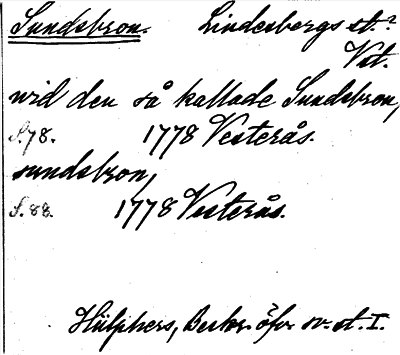 Sundsbron. Lindesbergs st.?
Vstm.
wid den så kallade Sundsbron,
S. 78. 1778 Vesterås.
sundsbron,
S. 88. 1778 Vesterås.
Hülphers, Beskr. öfver sv. st. I.